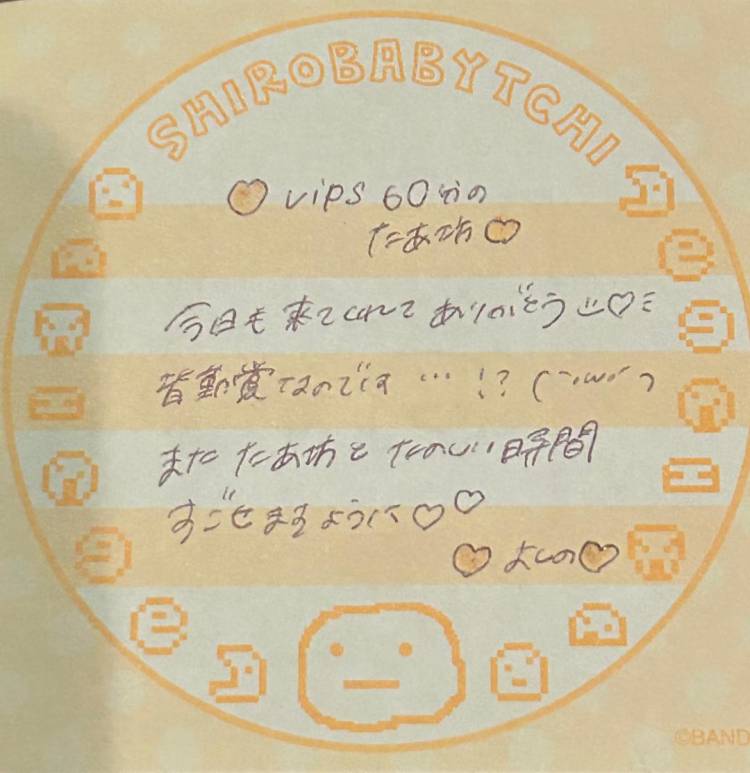 SHIROBABYTCHI
♡ vips 60分の
たあ坊♡
今日も来てくれてありがとう♡
皆勤賞なのです…!? (´･ω･`)
また たあ坊と たのしい時間
すごせますように♡♡
♡よしの♡
©BAND